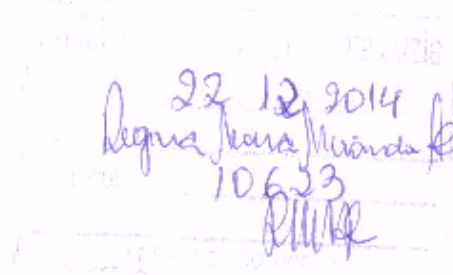 22 12 2014
Regina Mara Miranda
10623